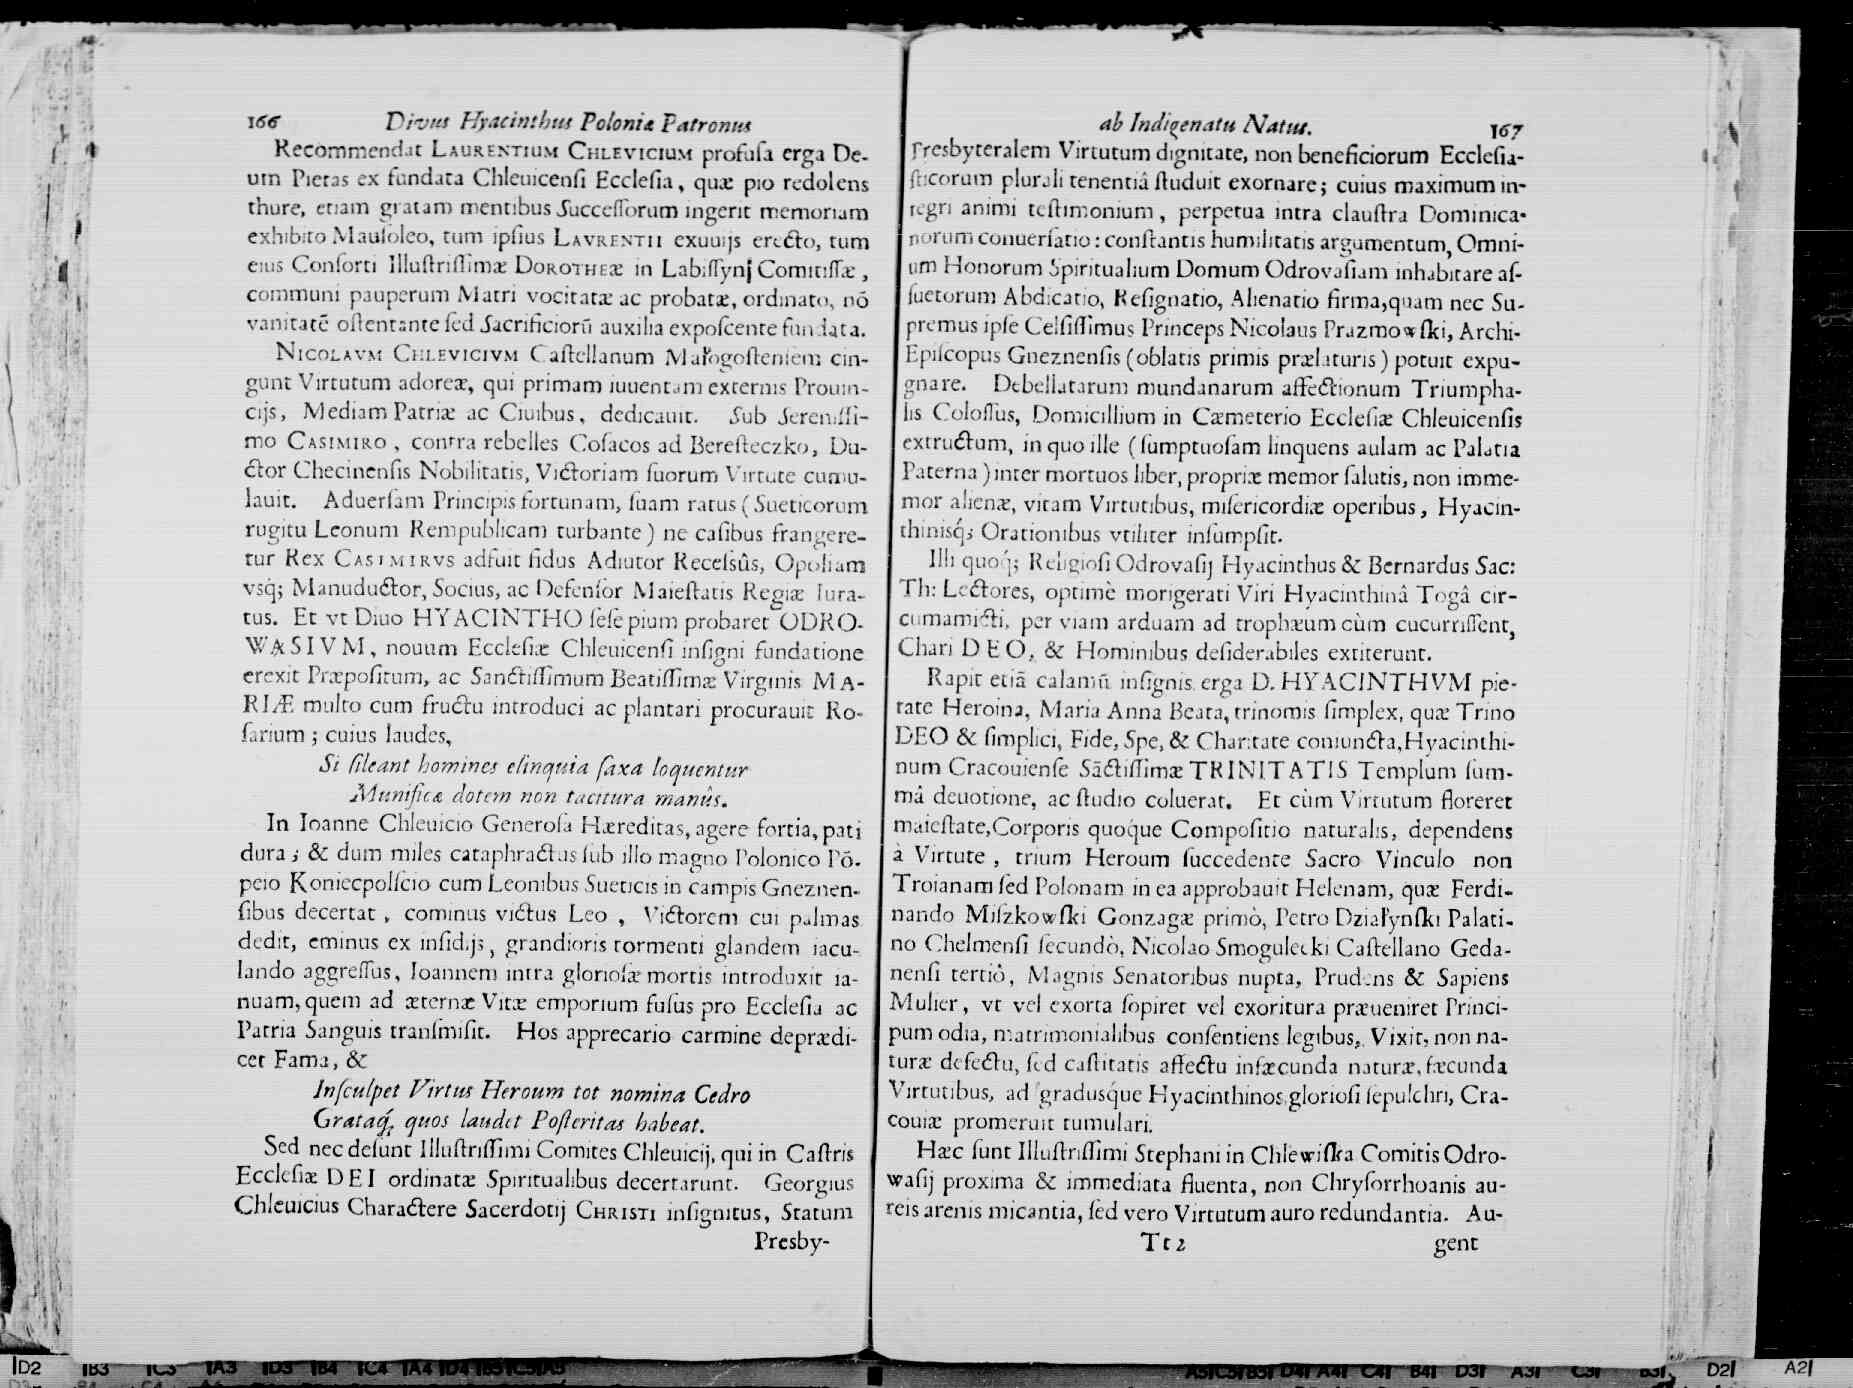 166 Divus Hyacinthus Poloniæ Patronus
Recommendat LAURENTIUM CHLEVICIUM profuſa erga De-
um Pietas ex fundata Chleuicenſi Eccleſia, quæ pio redolens
thure, etiam gratam mentibus Succeſſorum ingerit memoriam
exhibito Mauſoleo, tum ipſius LAVRENTII exuuijs erecto, tum
eius Conſorti Illuſtriſſimæ DOROTHEæ in Labiſſynj Comitiſſæ,
communi pauperum Matri vocitatæ ac probatæ, ordinato, nõ
vanitatẽ oſtentante ſed Sacrificiorũ auxilia expoſcente fundata.
NICOLAVM CHLEVICIVM Caſtellanum Małogoſtenſem cin-
gunt Virtutum adoreæ, qui primam iuuentam externis Prouin-
cijs, Mediam Patriæ ac Ciuibus, dedicauit. Sub Sereniſſi-
mo CASIMIRO, contra rebelles Coſacos ad Bereſteczko, Du-
ctor Checinenſis Nobilitatis, Victoriam ſuorum Virtute cumu-
lauit. Aduerſam Principis fortunam, ſuam ratus (Sueticorum
rugitu Leonum Rempublicam turbante) ne caſibus frangere-
tur Rex CASIMIRVS adfuit fidus Adiutor Receſsûs, Opoliam
vsq́; Manuductor, Socius, ac Defenſor Maieſtatis Regiæ Iura-
tus. Et vt Diuo HYACINTHO ſeſe pium probaret ODRO-
WASIVM, nouum Eccleſiæ Chleuicenſi inſigni fundatione
erexit Præpoſitum, ac Sanctiſſimum Beatiſſimæ Virginis MA-
RIÆ multo cum fructu introduci ac plantari procurauit Ro-
ſarium; cuius laudes,
Si ſileant homines elinquia ſaxa loquentur
Munificæ dotem non tacitura manûs.
In Ioanne Chleuicio Generoſa Hæreditas, agere fortia, pati
dura; & dum miles cataphractus ſub illo magno Polonico Põ-
peio Koniecpolſcio cum Leonibus Sueticis in campis Gneznen-
ſibus decertat, cominus victus Leo, Victorem cui palmas
dedit, eminus ex inſidijs, grandioris tormenti glandem iacu-
lando aggreſſus, Ioannem intra glorioſæ mortis introduxit ia-
nuam, quem ad æternæ Vitæ emporium fuſus pro Eccleſia ac
Patria Sanguis tranſmiſit. Hos apprecario carmine deprædi-
cet Fama, &
Inſculpet Virtus Heroum tot nomina Cedro
Grataq́, quos laudet Poſteritas habeat.
Sed nec deſunt Illuſtriſſimi Comites Chleuicij, qui in Caſtris
Eccleſiæ DEI ordinatæ Spiritualibus decertarunt. Georgius
Chleuicius Charactere Sacerdotij CHRISTI inſignitus, Statum
Presby-
ab Indigenatu Natus. 167
Presbyteralem Virtutum dignitate, non beneficiorum Eccleſia-
ſticorum plurali tenentiâ ſtuduit exornare; cuius maximum in-
tegri animi teſtimonium, perpetua intra clauſtra Dominica-
norum conuerſatio: conſtantis humilitatis argumentum, Omni-
um Honorum Spiritualium Domum Odrovaſiam inhabitare aſ-
ſuetorum Abdicatio, Reſignatio, Alienatio firma, quam nec Su-
premus ipſe Celſiſſimus Princeps Nicolaus Prazmowſki, Archi-
Epiſcopus Gneznenſis (oblatis primis prælaturis) potuit expu-
gnare. Debellatarum mundanarum affectionum Triumpha-
lis Coloſſus, Domicillium in Cæmeterio Eccleſiæ Chleuicenſis
extructum, in quo ille (ſumptuoſam linquens aulam ac Palatia
Paterna) inter mortuos liber, propriæ memor ſalutis, non imme-
mor alienæ, vitam Virtutibus, miſericordiæ operibus, Hyacin-
thinisq́; Orationibus vtiliter inſumpſit.
Illi quoq́; Religioſi Odrovaſij Hyacinthus & Bernardus Sac:
Th: Lectores, optimè morigerati Viri Hyacinthinâ Togâ cir-
cumamicti, per viam arduam ad trophæum cùm cucurriſſent,
Chari DEO, & Hominibus deſiderabiles extiterunt.
Rapit etiã calamũ inſignis erga D. HYACINTHVM pie-
tate Heroina, Maria Anna Beata, trinomis ſimplex, quæ Trino
DEO & ſimplici, Fide, Spe, & Charitate coniuncta, Hyacinthi-
num Cracouienſe Sãctiſſimæ TRINITATIS Templum ſum-
mâ deuotione, ac ſtudio coluerat. Et cùm Virtutum floreret
maieſtate, Corporis quoque Compoſitio naturalis, dependens
à Virtute, trium Heroum ſuccedente Sacro Vinculo non
Troianam ſed Polonam in ea approbauit Helenam, quæ Ferdi-
nando Miſzkowſki Gonzagæ primò, Petro Działynſki Palati-
no Chelmenſi ſecundò, Nicolao Smogulecki Caſtellano Geda-
nenſi tertiò, Magnis Senatoribus nupta, Prudens & Sapiens
Mulier, vt vel exorta ſopiret vel exoritura præueniret Princi-
pum odia, matrimonialibus conſentiens legibus, Vixit, non na-
turæ defectu, ſed caſtitatis affectu infæcunda naturæ, fæcunda
Virtutibus, ad gradusq́ue Hyacinthinos glorioſi ſepulchri, Cra-
couiæ promeruit tumulari.
Hæc ſunt Illuſtriſſimi Stephani in Chlewiſka Comitis Odro-
waſij proxima & immediata fluenta, non Chryſorrhoanis au-
reis arenis micantia, ſed vero Virtutum auro redundantia. Au-
Tt2 gent